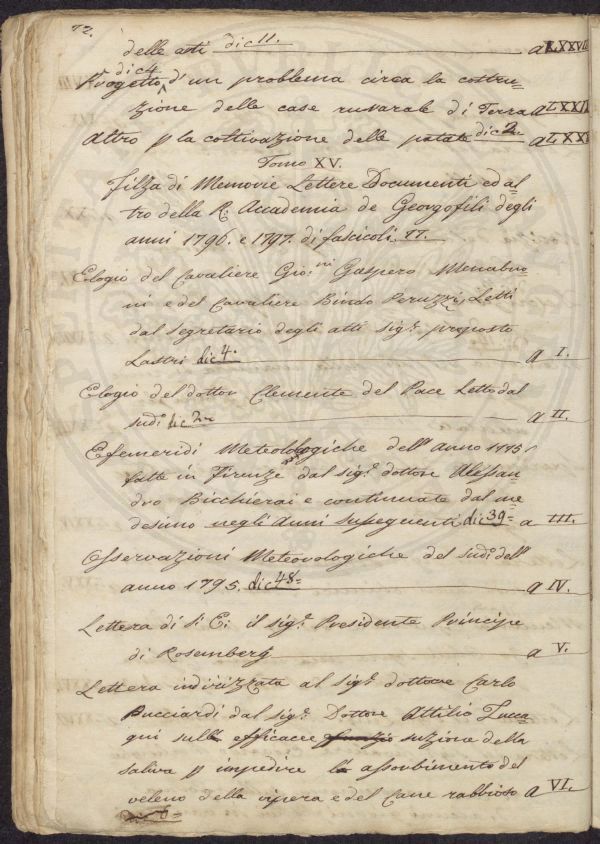 72.
delle arti dic 11. a LXXVII
dic 4
Progetto d'un problema circa la costru-
zione delle case rusurale di Terra a LXXI
Altro p la coltivazione delle patate dic 2 a LXXI
Tomo XV.
Filza di Memorie Lettere Documenti ed al-
tro della R: Accademia de Georgofili degli
anni 1796. e 1797. di fascicoli. 77.
Elogio del Cavaliere Gio:ni Gaspero Menabuo
ni e del Cavaliere Bindo Peruzzi, Letti
dal segretario degli atti sigr. proposto
Lastri dic 4. a I.
Elogio del dottor Clemente del Pace Letto dal
sudo dic 2 a II.
Efemeridi Meteologiche dell' anno 1795
fatte in Firenze dal sigr. dottore Alessan
dro Bicchierai e continuate dal me
desimo negli Anni susseguenti dic 39= a III.
Osservazioni Meteorologiche del sudo dell'
anno 1795. dic 48= a IV.
Lettera di S: E: il sigr. Presidente Principe
di Rosemberg a V.
Lettera indirizzata al sigr. dottore Carlo
Pucciardi dal sigr. Dottore Attilio Zucca
gni sull efficacee suzione della
saliva p impedire la assorbimento del
veleno della vipera e del Cane rabbioso a VI.
dic 6=